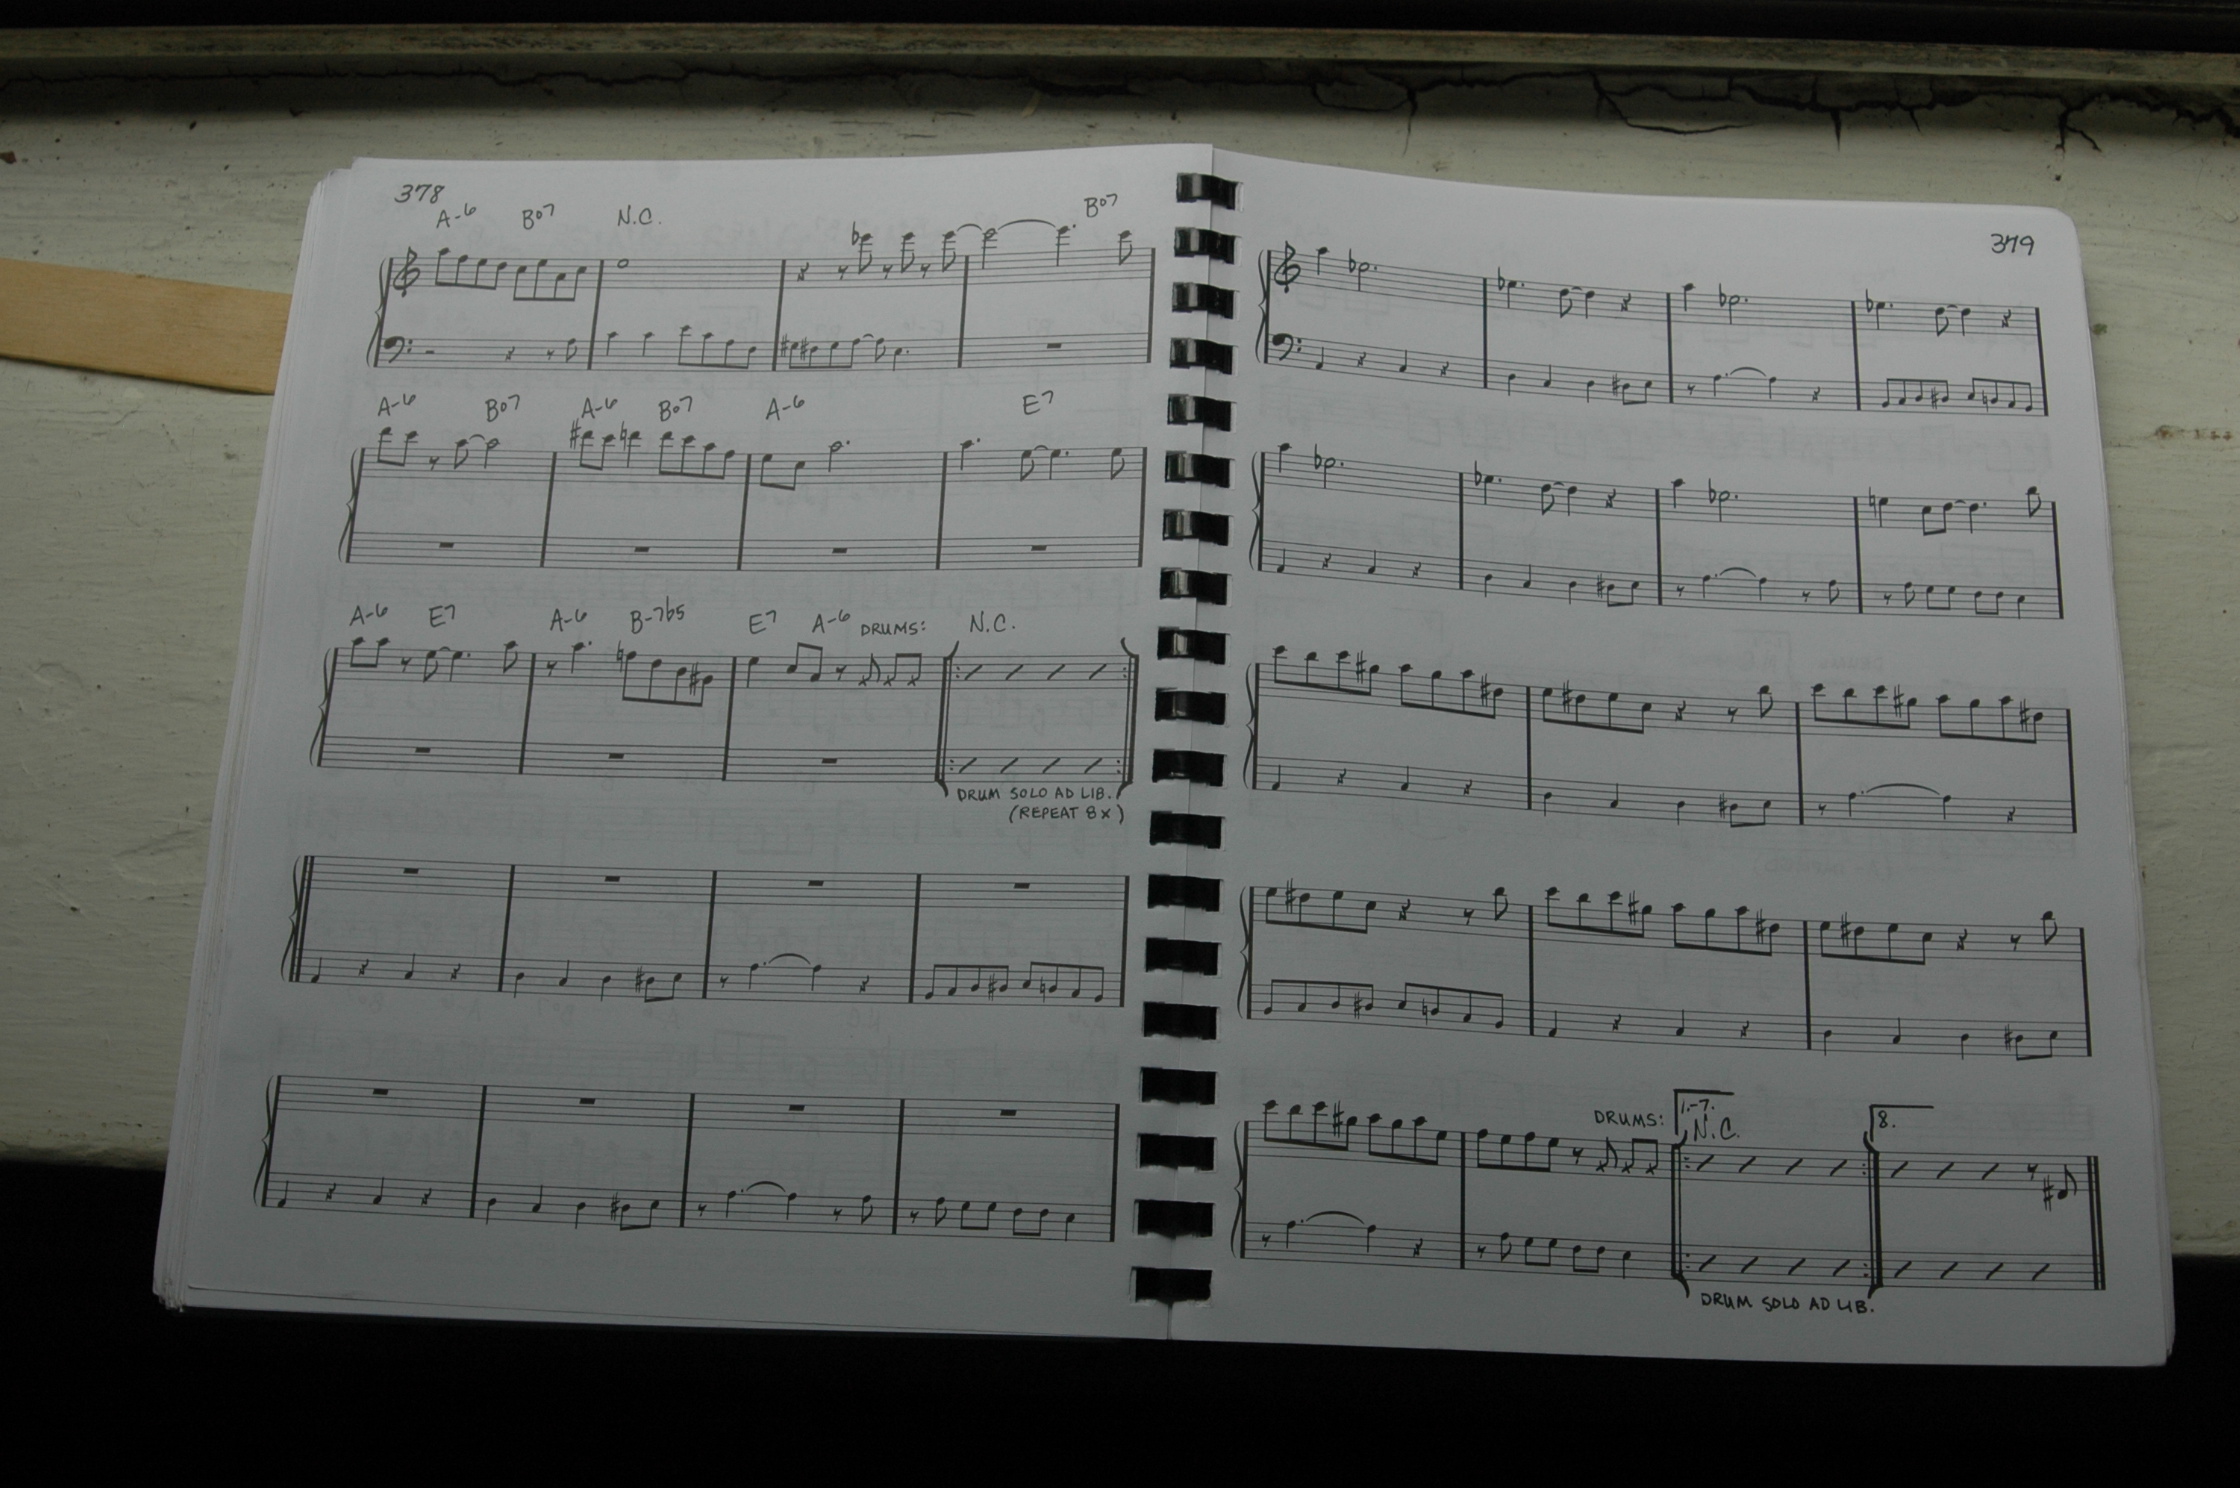 378
A-6 Bo7 N.C. Bo7
A-6 Bo7 A-6 Bo7 A-6 E7
A-6 E7 A-6 B-7b5 E7 A-6 DRUMS: N.C.
DRUM SOLO AD LIB.
(REPEAT 8X)
379
DRUMS: 1.-7. 8.
N.C.
DRUM SOLO AD LIB.